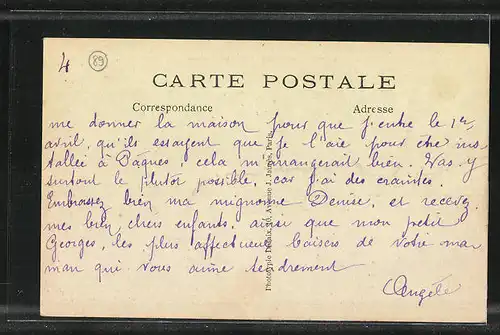 4
89
CARTE POSTALE
Correspondance
Adresse
me donner la maison pour que j'entre le 1er
avril, qu'ils essayent que je l'aie pour être ins-
tallée à Pâques, cela m'arrangerait bien. Vas-y
surtout le plutôt possible, car j'ai des craintes.
Embrassez bien ma mignonne Denise, et recevez
mes bien chers enfants, ainsi que mon petit
Georges, les plus affectueux baisers de votre ma-
man qui vous aime tendrement
Angèle
Phototypie Avenue J. Jaurès, Paris.